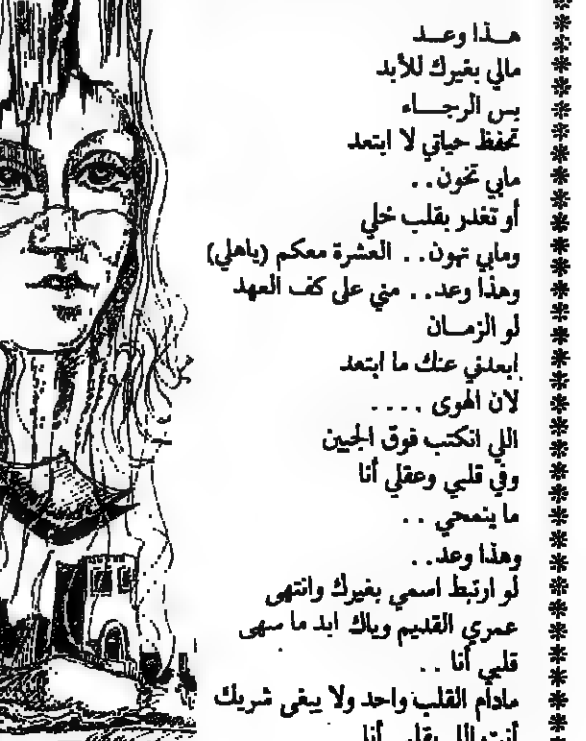 هـــذا وعـــد
مالي بغيرك للأبد
بس الرجـــاء
تحفظ حياتي لا ابتعد
مابي تخون . .
أو تغدر بقلب خلي
ومابي تهون . . العشرة معكم (ياهلي)
وهذا وعد . . مني على كف العهد
لو الزمـــان
ابعدني عنك ما ابتعد
لان الهوى . . . .
اللي انكتب فوق الجبين
وفي قلبي وعقلي أنا
ما ينمحي . .
وهذا وعد . .
لو ارتبط اسمي بغيرك وانتهى
عمري القديم وياك ابد ما سهى
قلبي أنا . .
مادام القلب واحد ولا يبغى شريك
أنت اللي بقلبي أنا